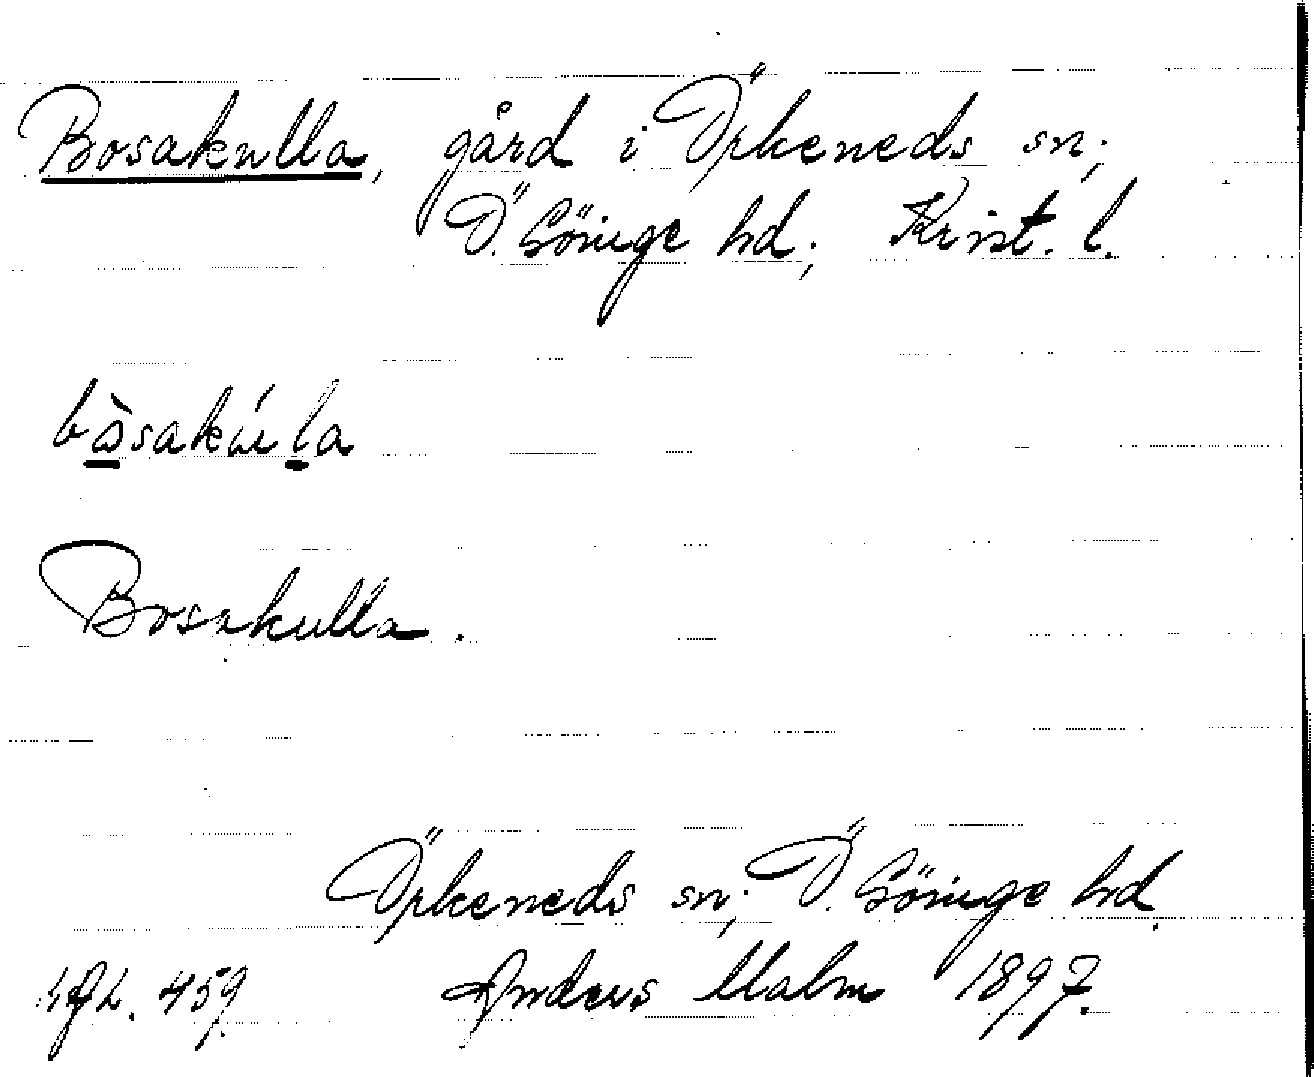 Bosakulla, gård i Örkeneds sn;
Ö. Göinge hd; Krist. l.
bòsakúla
Bosakulla.
Örkeneds sn; Ö. Göinge hd.
459. Anders Malm 1897.